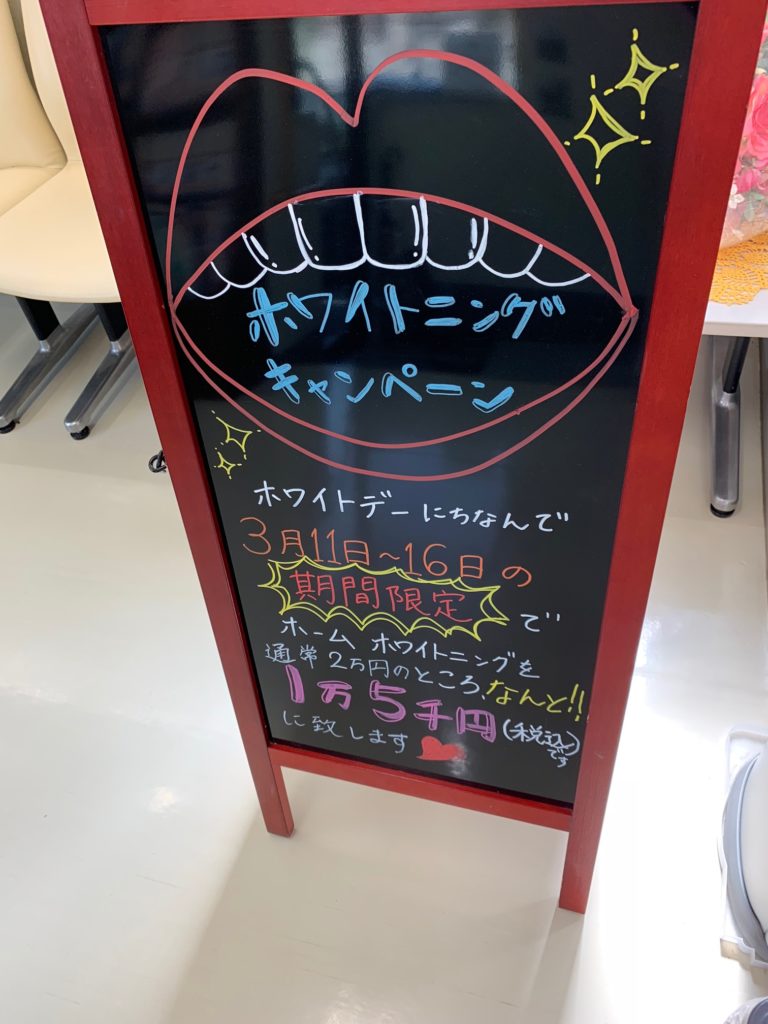 ホワイトニング
キャンペーン
ホワイトデーにちなんで
3月11日~16日の
期間限定で
ホーム ホワイトニングを
通常 2万円のところ、なんと!!
1万5千円(税込)です
に致します